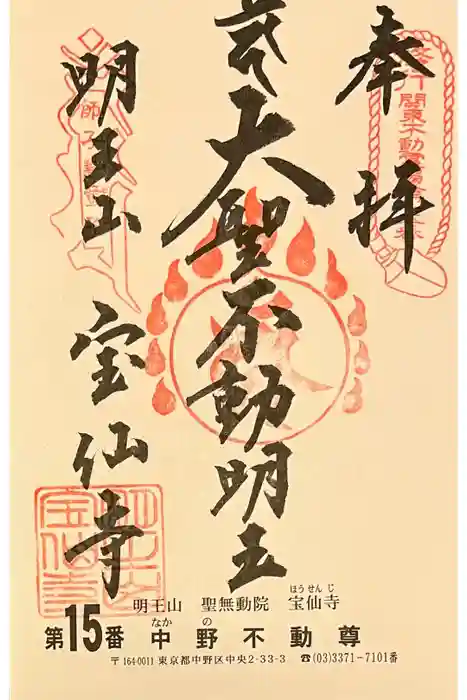 奉拝
大聖不動明王
明王山
宝仙寺
明王山　聖無動院　宝仙寺
ほうせんじ
第15番　中野不動尊
なかの
〒164-0011 東京都中野区中央2-33-3　☎(03)3371-7101番